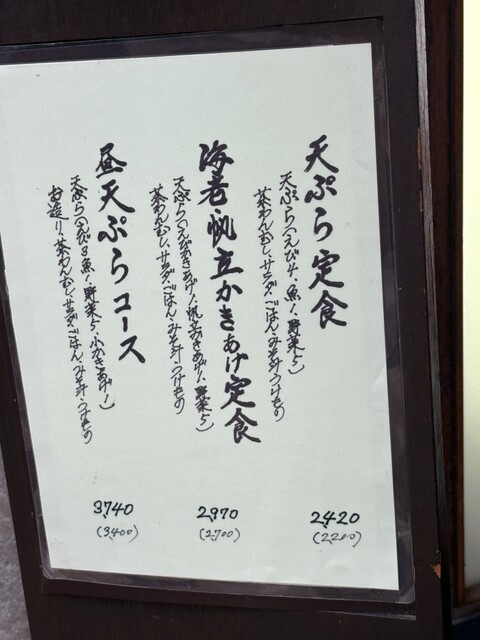 天ぷら定食
天ぷら(えび4・魚1・野菜5)
茶わんむし・サラダ・ごはん・みそ汁・つけもの
2,420
(2,200)
海老・帆立かきあげ定食
天ぷら(えびかきあげ1・帆立かきあげ1・野菜5)
茶わんむし・サラダ・ごはん・みそ汁・つけもの
2,970
(2,700)
昼天ぷらコース
天ぷら(えび3・魚1・野菜5・小かきあげ1)
お造り・茶わんむし・サラダ・ごはん・みそ汁・つけもの
3,740
(3,400)